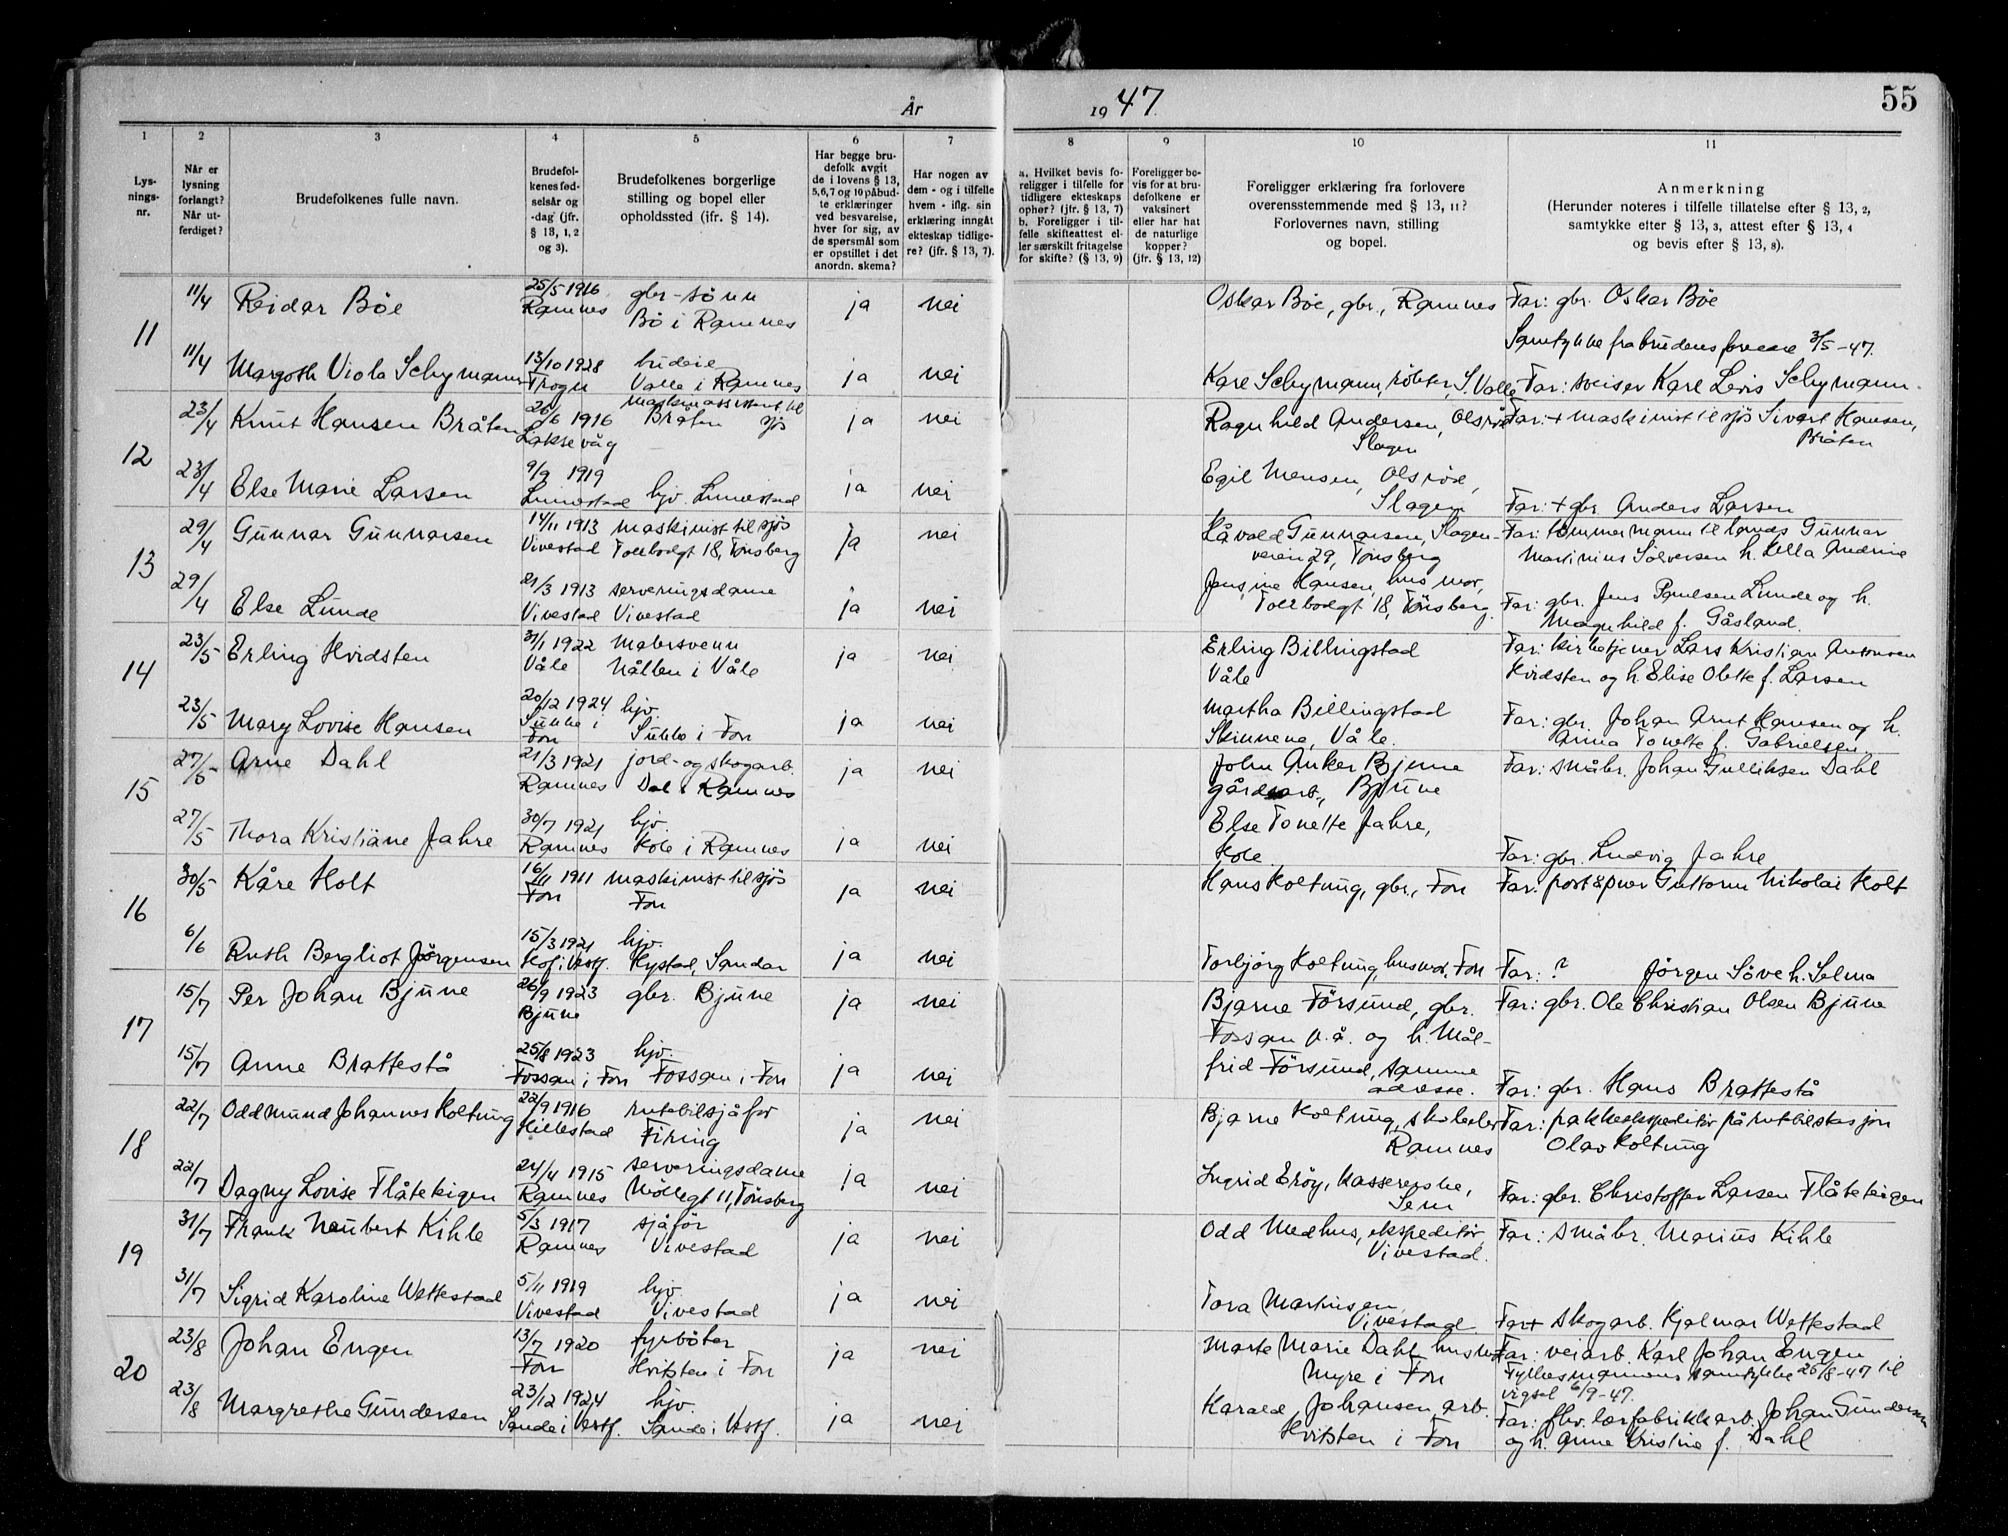 År 1947.
55
1 2 3 4 5 6 7 8 9 10 11
Lysningsnr.
Når er lysning forlangt? Når utferdiget?
Brudefolkenes fulle navn.
Brudefolkenes fødselsår og -dag (jfr. § 13, 1, 2 og 3).
Brudefolkenes borgerlige stilling og bopel eller opholdssted (ifr. § 14).
Har begge brudefolk avgit de i lovens § 13, 5,6,7 og 10 påbudte erklæringer ved besvarelse, hver for sig, av de spørsmål som er opstillet i det anordn. skema?
Har nogen av dem - og i tilfelle hvem - iflg. sin erklæring inngått ekteskap tidligere? (jfr. § 13, 7).
a. Hvilket bevis foreligger i tilfelle for tidligere ekteskaps ophør? (jfr. § 13, 7) b. Foreligger i tilfelle skifteattest eller særskilt fritagelse for skifte? (§ 13, 9)
Foreligger bevis for at brudefolkene er vaksinert eller har hat de naturlige kopper? (jfr. § 13, 12)
Foreligger erklæring fra forlovere overensstemmende med § 13, 11? Forlovernes navn, stilling og bopel.
Anmerkning (Herunder noteres i tilfelle tillatelse efter § 13, 2, samtykke efter § 13, 3, attest efter § 13, 4 og bevis efter § 13, 8).
11
11/4 Reidar Bøe 25/5 1916 gbr-sønn ja nei Oskar Bøe, gbr., Ramnes Far: gbr. Oskar Bøe
Ramnes Bö i Ramnes
Samtykke fra brudens foreldre 3/5-47.
11/4 Margoth Viola Schymann 13/10 1928 budeie ja nei Kare Schymann, S. Valle Far: sveiser Karl Schymann
Trøgn Valle i Ramnes
12
23/4 Knut Hansen Bråten 26/6 1916 maskinassistent til sjös ja nei Ragnhild Andersen, Olsröd Far: + maskinist til sjös Sivert Hansen,
Laksevåg Bråten Slagen Bråten
23/4 Else Marie Larsen 9/9 1919 ja nei Egil Monsen, Olsröd,
Linnestad hjv. Linnestad Slagen Far: + gbr. Anders Larsen
13
29/4 Gunnar Gunnarsen 14/11 1913 maskinist til sjös ja nei Kåvald Gunnarsen, Slagen- Far: tömmermann til lands Gunnar
Vivestad Tollbodgt 18, Tönsberg veien 29, Tönsberg Martinius Solversen h. Andrine
29/4 Else Lunde 21/3 1913 serveringsdame ja nei Jensine Hansen, husmor, Far: gbr. Jens Paulsen Lunde og h.
Vivestad Vivestad Tollbodgt 18, Tönsberg. Magnhild f. Gåsland.
14
23/5 Erling Hvidsten 31/1 1922 malersvenn ja nei Erling Billingstad Far: kirketjener Lars Kristian Antonsen
Våle Nålben i Våle Våle Hvidsten og h. Elise Olette f. Larsen
23/5 Mary Lovise Hansen 20/12 1924 hjv. ja nei Martha Billingstad Far: gbr. Johan Arnt Hansen og h.
Sukke i Fon Sukke i Fon Skinnene, Våle. Anna Tonette f. Gabrielsen
15
27/5 Arne Dahl 21/3 1921 jord- og skogarb. ja nei John Anker Bjune Far: småbr. Johan Gulliksen Dahl
Ramnes Dal i Ramnes gårdsarb., Bjune
27/5 Thora Kristiane Jahre 30/7 1921 hjv. ja nei Else Tonette Jahre,
Ramnes Hole i Ramnes Hole. Far: gbr. Ludvig Jahre
16
30/5 Kåre Holt 16/11 1911 maskinist til sjös ja nei Hans Holtung, gbr., Fon Far: poståpner Guttorm Nikolai Holt
Fon Fon
6/6 Ruth Bergliot Jörgensen 15/3 1921 hjv. ja nei Torbjörg Holtung, husmor, Fon Far: ? Jörgen Söve h. Selma
Hof i Vestf. Hystad, Sandar
17
15/7 Per Johan Bjune 26/9 1923 gbr. Bjune ja nei Bjarne Försund, gbr. Far: gbr. Ole Christian Olsen Bjune
Bjune Fossan p.å. og h. Mål-
15/7 Anne Brattestå 25/8 1923 hjv. ja nei frid Försund, samme
Fossan i Fon Fossan i Fon adresse. Far: gbr. Hans Brattestå
18
22/7 Oddmund Johannes Holtung 22/9 1916 rutebilsjåför ja nei Bjarne Holtung, skoleelev Far: pakkeekspeditör på rutebilstasjon
Hillestad Firing Ramnes Olav Holtung
22/7 Dagny Lovise Flåteteigen 24/4 1915 serveringsdame ja nei Ingrid Eröy, kassererske, Far: gbr. Christoffer Larsen Flåteteigen
Ramnes Möllegt 11, Tönsberg Sem
19
31/7 Frank Neubert Kihle 5/3 1917 sjåför ja nei Odd Medhus, ekspeditör, Far: småbr. Marius Kihle
Ramnes Vivestad Vivestad.
31/7 Sigrid Karoline Wettestad 5/11 1919 hjv. ja nei Tora Martinsen,
Vivestad Vivestad Vivestad Far + skogarb. Hjalmar Wettestad
20
23/8 Johan Engen 13/7 1920 fyrböter ja nei Marte Marie Dahl husmor Far: veiarb. Karl Johan Engen
Fon Hvitsten i Fon Myre i Fon Fylkesmannens samtykke 26/8-47 til
vigsel 6/9-47.
23/8 Margrethe Gundersen 23/12 1924 hjv. ja nei Harald Johansen arb. Far: fhv. lærfabrikkarb. Johan Gundersen
Sande i Vestf. Sande i Vestf. Hvitsten i Fon og h. Anne Kristine f. Dahl